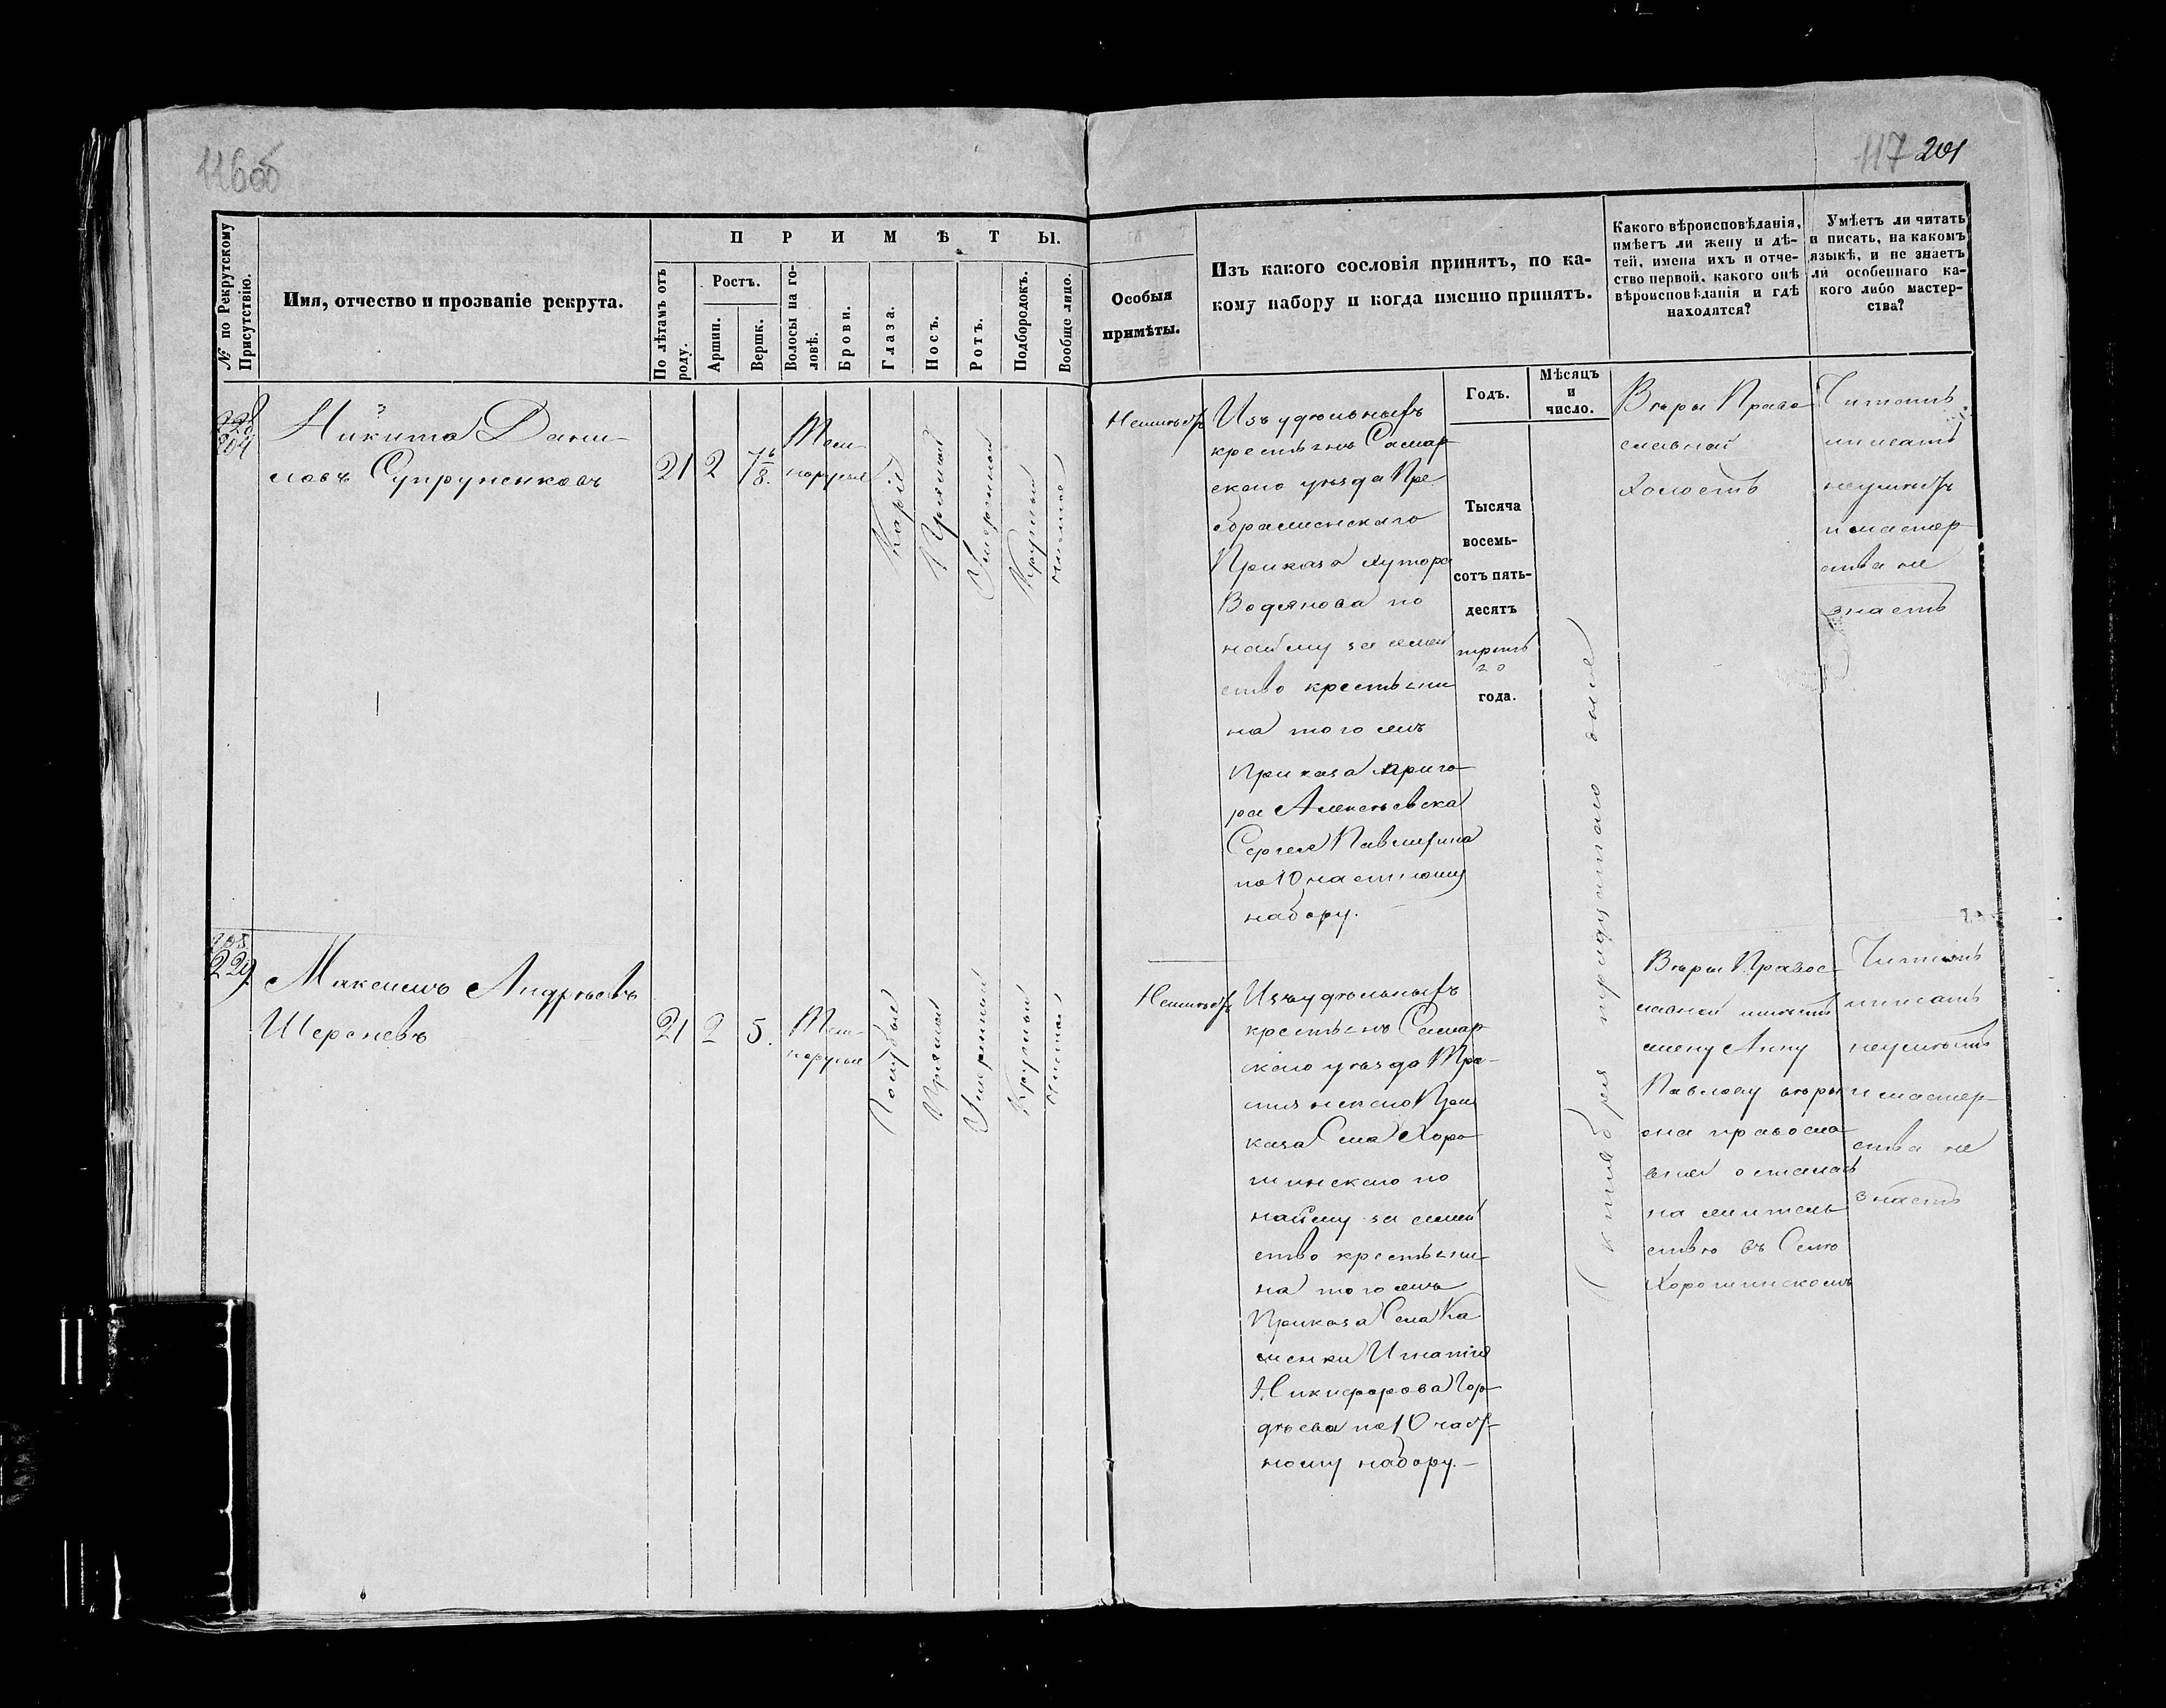 116об
117 201
№ по Рекрутскому Присутствію.
Имя, отчество и прозваніе рекрута.
ПРИМѢТЫ.
По лѣтамъ отъ роду.
Ростъ.
Аршин.
Вершк.
Волосы на головѣ.
Брови.
Глаза.
Носъ.
Ротъ.
Подбородокъ.
Вообще лицо.
Особыя
примѣты.
Изъ какого сословія принятъ, по ка-
кому набору и когда именно принятъ.
Годъ.
Мѣсяцъ
и
число.
Какого вѣроисповѣданія,
имѣетъ ли жену и дѣ-
тей, имена ихъ и отче-
ство первой, какого онѣ
вѣроисповѣданія и гдѣ
находятся?
Умѣетъ ли читать
и писать, на какомъ
языкѣ, и не знаетъ
ли особеннаго ка-
кого либо мастер-
ства?
228
204
Никита Дани-
ловъ Супруненковъ
21
2
Тем-
норусые
Каріе
Прямой
Умѣренной
Круглый
чистое
Неимѣетъ
Изъ удѣльныхъ
крестьянъ Самар
скаго уѣзда Пре
ображенскаго
Приказа хутора
Водянова по
найму за семей
ство крестьяни
на того жъ
Приказа приго-
ра Алексѣевска
Сергея
по 10 частному
набору.
Тысяча
восемь-
сотъ пять-
десятъ
третья
го
года.
Октября тридцатаго дня
Вѣры Право
славной
Холостъ
Читать
писать
неумѣетъ
и мастер-
ства не
знаетъ
205.
229.
Максимъ Андреевъ
Шереневъ
21
2
5.
Тем-
норусые
Голубые
Прямой
Умѣренной
Круглый
Чистое
Неимѣетъ
Изъ удѣльныхъ
крестьянъ Самар
скаго уѣзда Тро-
стянскаго При
каза Села Хоро
шинскаго по
найму за семей
ство крестьяни-
на того жъ
Приказа Села Ка
менки Игнатія
Никифорова Гор-
дѣева по 10 част-
ному набору.
Вѣры Правос-
лавной имѣетъ
жену Анну
Павлову вѣры
она правосла
вной осталась
на жительс
ствѣ въ Селѣ
Хорошинскомъ
Читать
писать
неумѣетъ
и мастер-
ства не
знаетъ